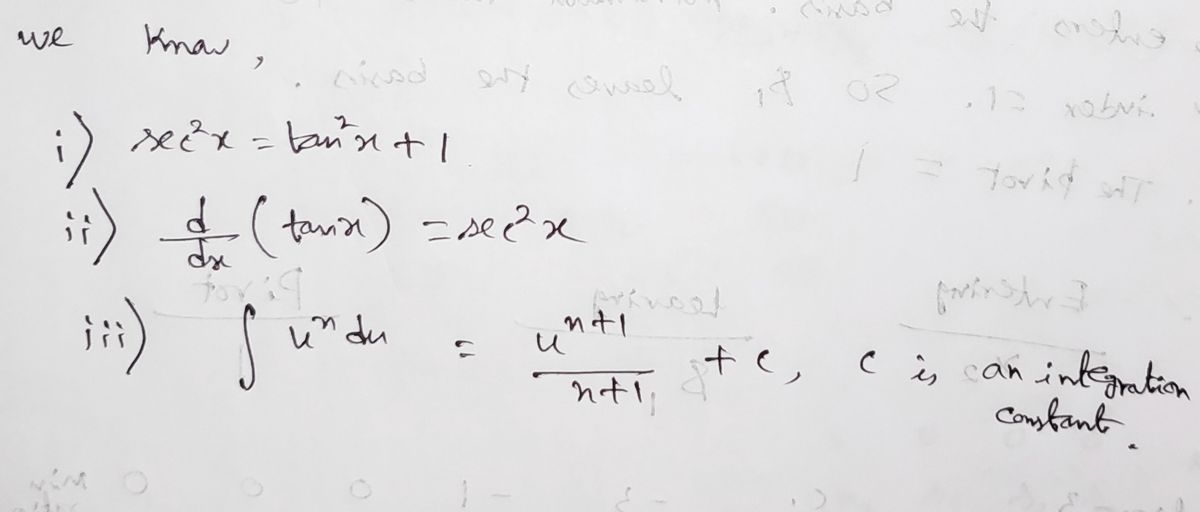 we know,
i) sec²x = tan²x + 1
ii) d/dx (tanx) = sec²x
iii) ∫ uⁿ du = uⁿ⁺¹/n+1 + c, c is an integration
constant.